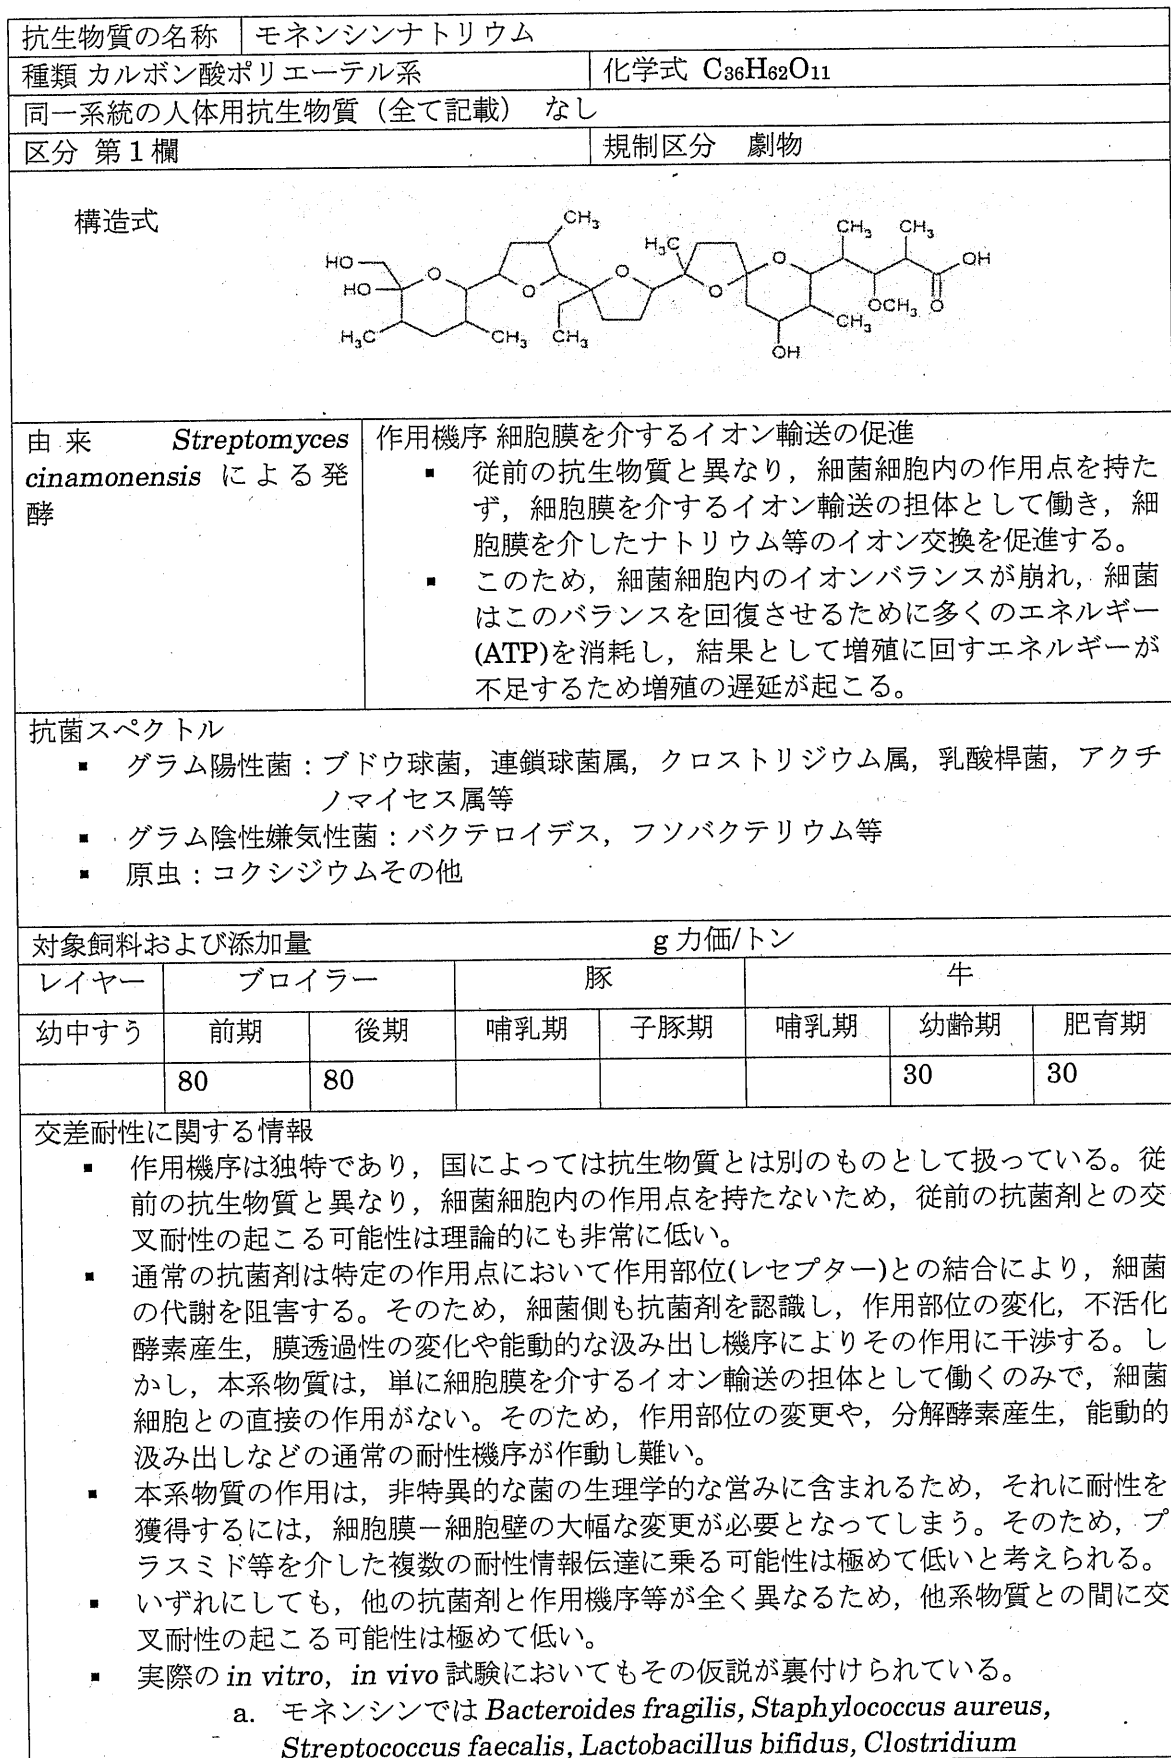 抗生物質の名称 モネンシンナトリウム
種類 カルボン酸ポリエーテル系 化学式 C36H62O11
同一系統の人体用抗生物質（全て記載） なし
区分 第1欄 規制区分 劇物
構造式
CH3 H3C CH3 CH3
HO O O O OH
HO O O OCH3 O
H3C CH3 CH3 CH3
OH
由来 Streptomyces
cinamonensis による発
酵
作用機序 細胞膜を介するイオン輸送の促進
▪ 従前の抗生物質と異なり，細菌細胞内の作用点を持た
ず，細胞膜を介するイオン輸送の担体として働き，細
胞膜を介したナトリウム等のイオン交換を促進する。
▪ このため，細菌細胞内のイオンバランスが崩れ，細菌
はこのバランスを回復させるために多くのエネルギー
(ATP)を消耗し，結果として増殖に回すエネルギーが
不足するため増殖の遅延が起こる。
抗菌スペクトル
▪ グラム陽性菌：ブドウ球菌，連鎖球菌属，クロストリジウム属，乳酸桿菌，アクチ
ノマイセス属等
▪ グラム陰性嫌気性菌：バクテロイデス，フソバクテリウム等
▪ 原虫：コクシジウムその他
対象飼料および添加量 g力価/トン
レイヤー ブロイラー 豚 牛
幼中すう 前期 後期 哺乳期 子豚期 哺乳期 幼齢期 肥育期
80 80 30 30
交差耐性に関する情報
▪ 作用機序は独特であり，国によっては抗生物質とは別のものとして扱っている。従
前の抗生物質と異なり，細菌細胞内の作用点を持たないため，従前の抗菌剤との交
叉耐性の起こる可能性は理論的にも非常に低い。
▪ 通常の抗菌剤は特定の作用点において作用部位(レセプター)との結合により，細菌
の代謝を阻害する。そのため，細菌側も抗菌剤を認識し，作用部位の変化，不活化
酵素産生，膜透過性の変化や能動的な汲み出し機序によりその作用に干渉する。し
かし，本系物質は，単に細胞膜を介するイオン輸送の担体として働くのみで，細菌
細胞との直接の作用がない。そのため，作用部位の変更や，分解酵素産生，能動的
汲み出しなどの通常の耐性機序が作動し難い。
▪ 本系物質の作用は，非特異的な菌の生理学的な営みに含まれるため，それに耐性を
獲得するには，細胞膜－細胞壁の大幅な変更が必要となってしまう。そのため，プ
ラスミド等を介した複数の耐性情報伝達に乗る可能性は極めて低いと考えられる。
▪ いずれにしても，他の抗菌剤と作用機序等が全く異なるため，他系物質との間に交
叉耐性の起こる可能性は極めて低い。
▪ 実際の in vitro，in vivo 試験においてもその仮説が裏付けられている。
a. モネンシンでは Bacteroides fragilis, Staphylococcus aureus,
Streptococcus faecalis, Lactobacillus bifidus, Clostridium